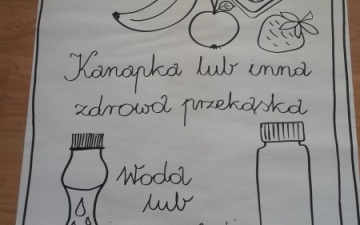 Kanapka lub inna
zdrowa przekąska
Woda
lub